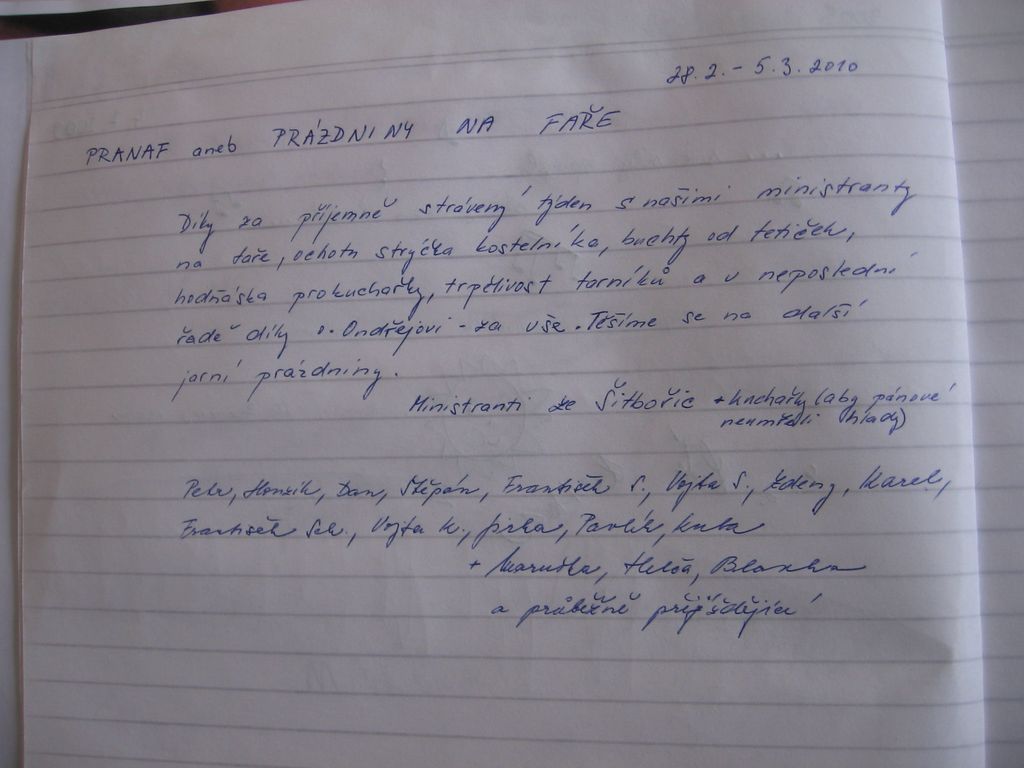 28. 2. - 5. 3. 2010
PRANAF aneb PRÁZDNINY NA FAŘE
Díky za příjemně strávený týden s našimi ministranty
na faře, ochotu strýčka kostelníka, buchty od tetiček,
hodňáska prokuchařky, trpělivost farníků a v neposlední
řadě díky o. Ondřejovi - za vše. Těšíme se na další
jarní prázdniny.
Ministranti ze Šitbořic + kuchařky (aby pánové
neumřeli hlady)
Petr, Honzík, Dan, Štěpán, František S., Vojta S., Zdeny, Karel,
František Sch., Vojta K., Jirka, Pavlík, Kuba
+ Maruška, Helča, Blanka
a průběžně přijíždějící